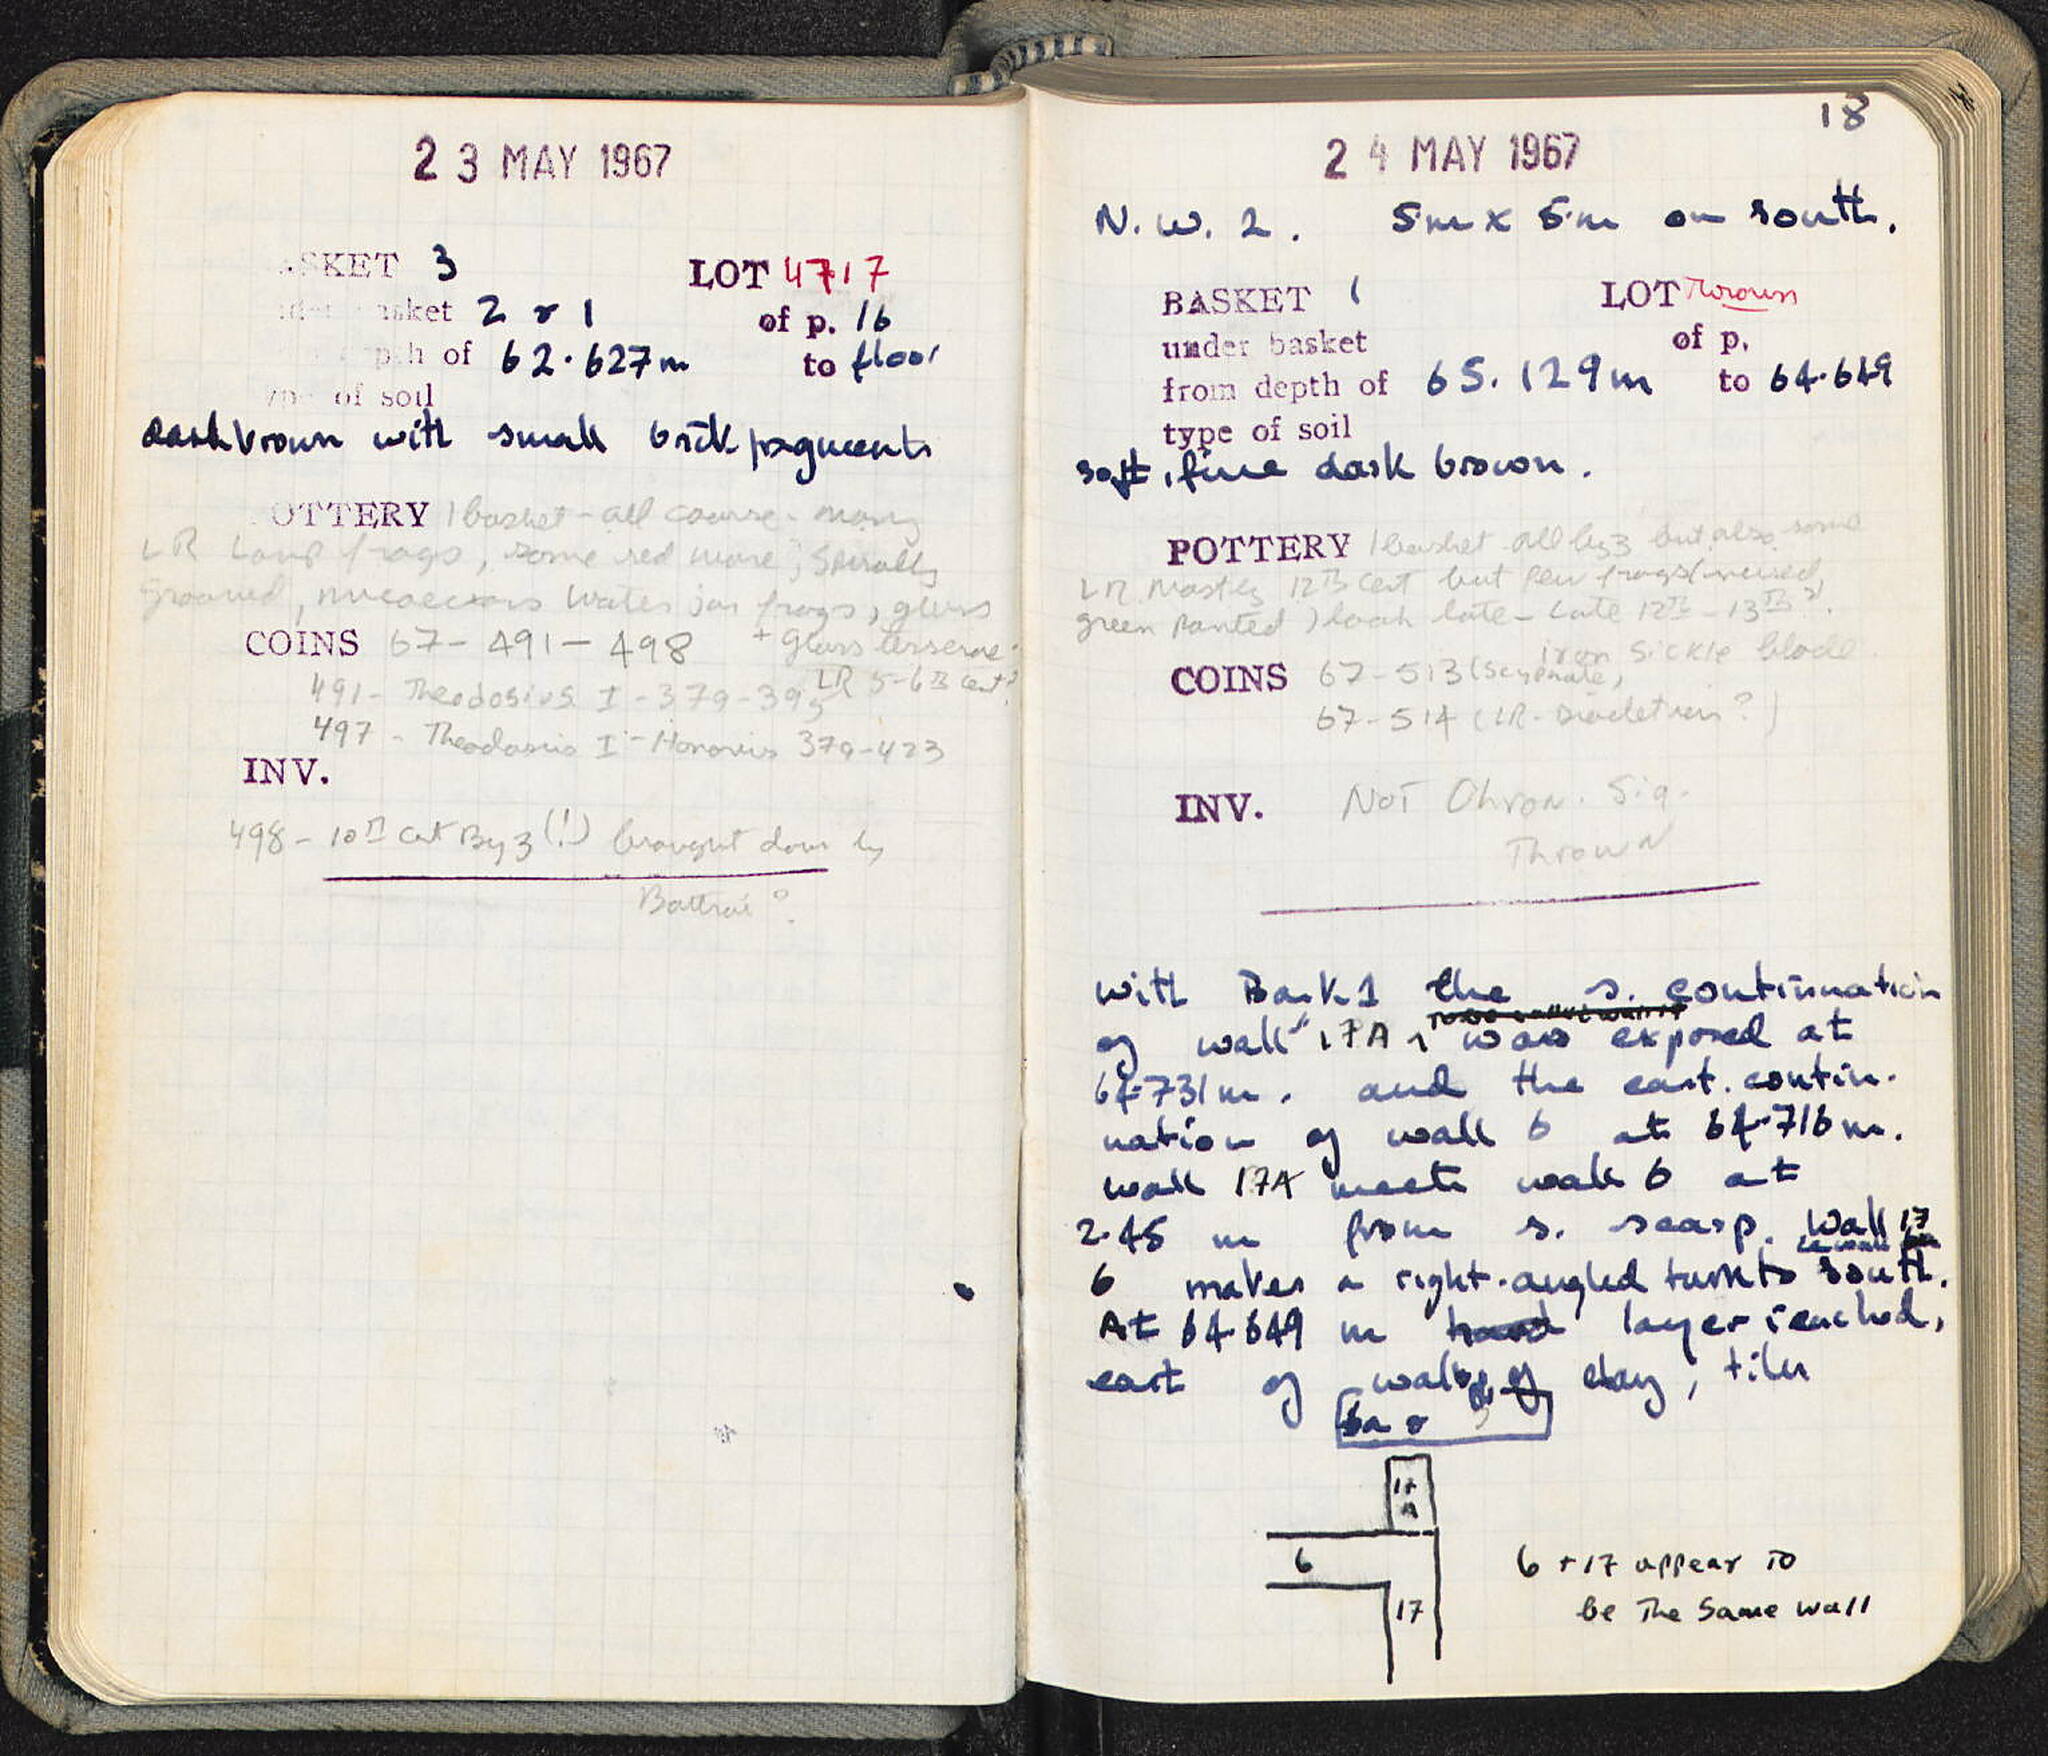 23 MAY 1967
BASKET 3 LOT 4717
under basket 2 & 1 of p. 16
from depth of 62.627m to floor
type of soil
dark brown with small brick fragments
POTTERY 1 basket - all coarse - many
LR Lamp frags, some red ware; Spirally
grooved, micaceous water jar frags, glass
COINS 67-491-498 + glass tesserae
LR 5-6th cent?
491 - Theodosius I - 379-395
497 - Theodosius I - Honorius 379-423
INV.
498 - 10th cent Byz (!) brought down by
Bothroi?
18
24 MAY 1967
N.W. 2. 5m x 5m on south.
BASKET 1 LOT Thrown
under basket of p.
from depth of 65.129m to 64.649
type of soil
soft, fine dark brown.
POTTERY 1 basket all byz but also some
LR Mostly 12th cent but few frags (incised,
green painted) look late - Late 12th - 13th?.
iron sickle blade.
COINS 67-513 (Scyphate,
67-514 (LR - Diocletian?)
INV. Not Chron. Sig.
Thrown
with Bask 1 the s. continuation
of wall 17A was exposed at
64.731m. and the east. contin-
nation of wall 6 at 64.716m.
wall 17A meets wall 6 at
2.45 m from s. scarp. Wall 17
6 makes a right-angled turn to south.
At 64.649 m hard layer reached,
east of walls of clay, tiles
6a &
17
A
6
17
6 + 17 appear to
be the same wall